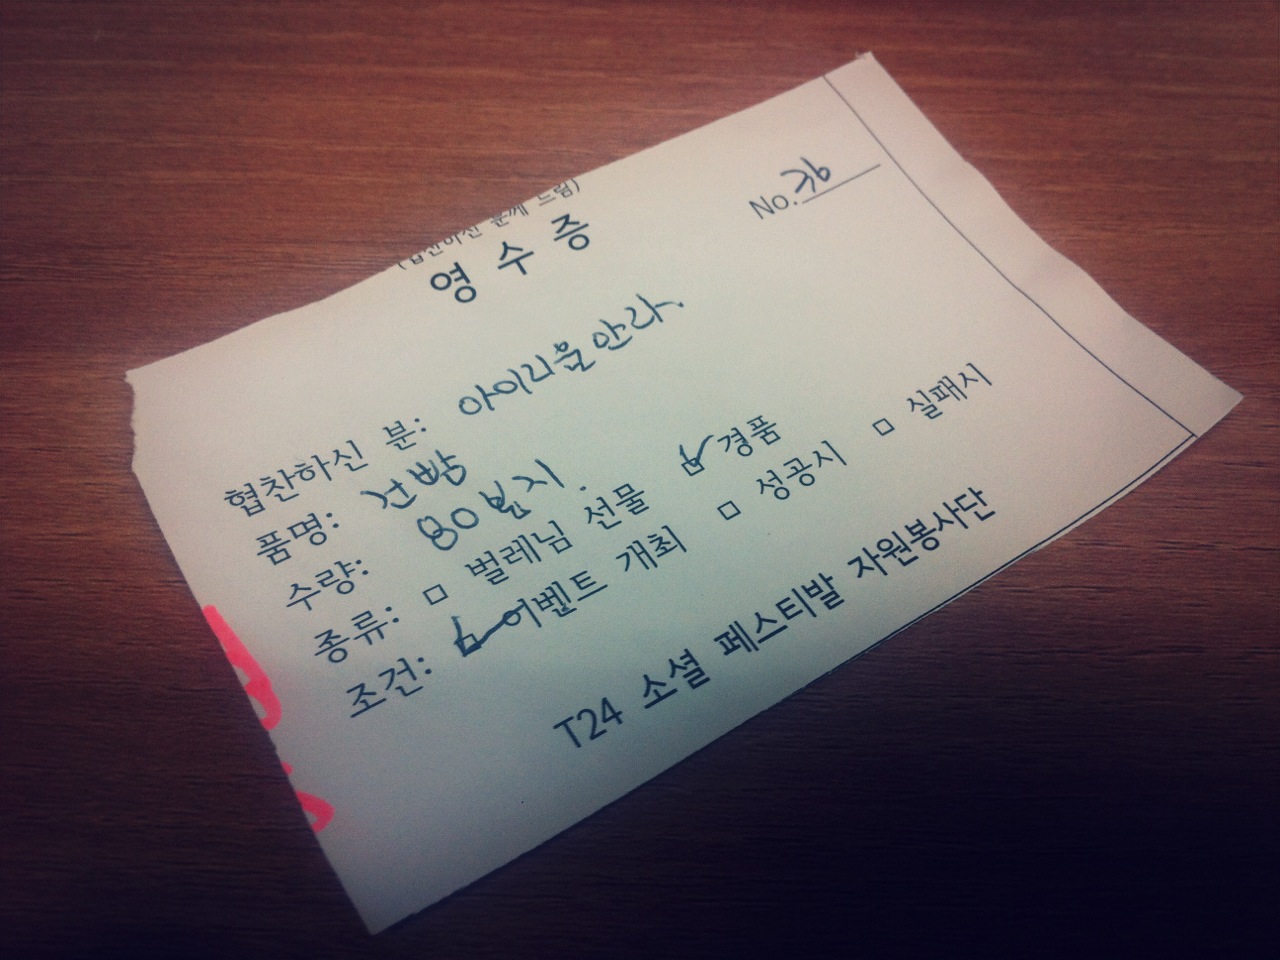 (협찬하신 분께 드림)
영수증
No. 36
협찬하신 분: 아이리운안라.
품명: 건빵
수량: 80봉지.
종류: □ 벌레님 선물 ☑ 경품
조건: ☑ 이벤트 개최 □ 성공시 □ 실패시
T24 소셜 페스티발 자원봉사단